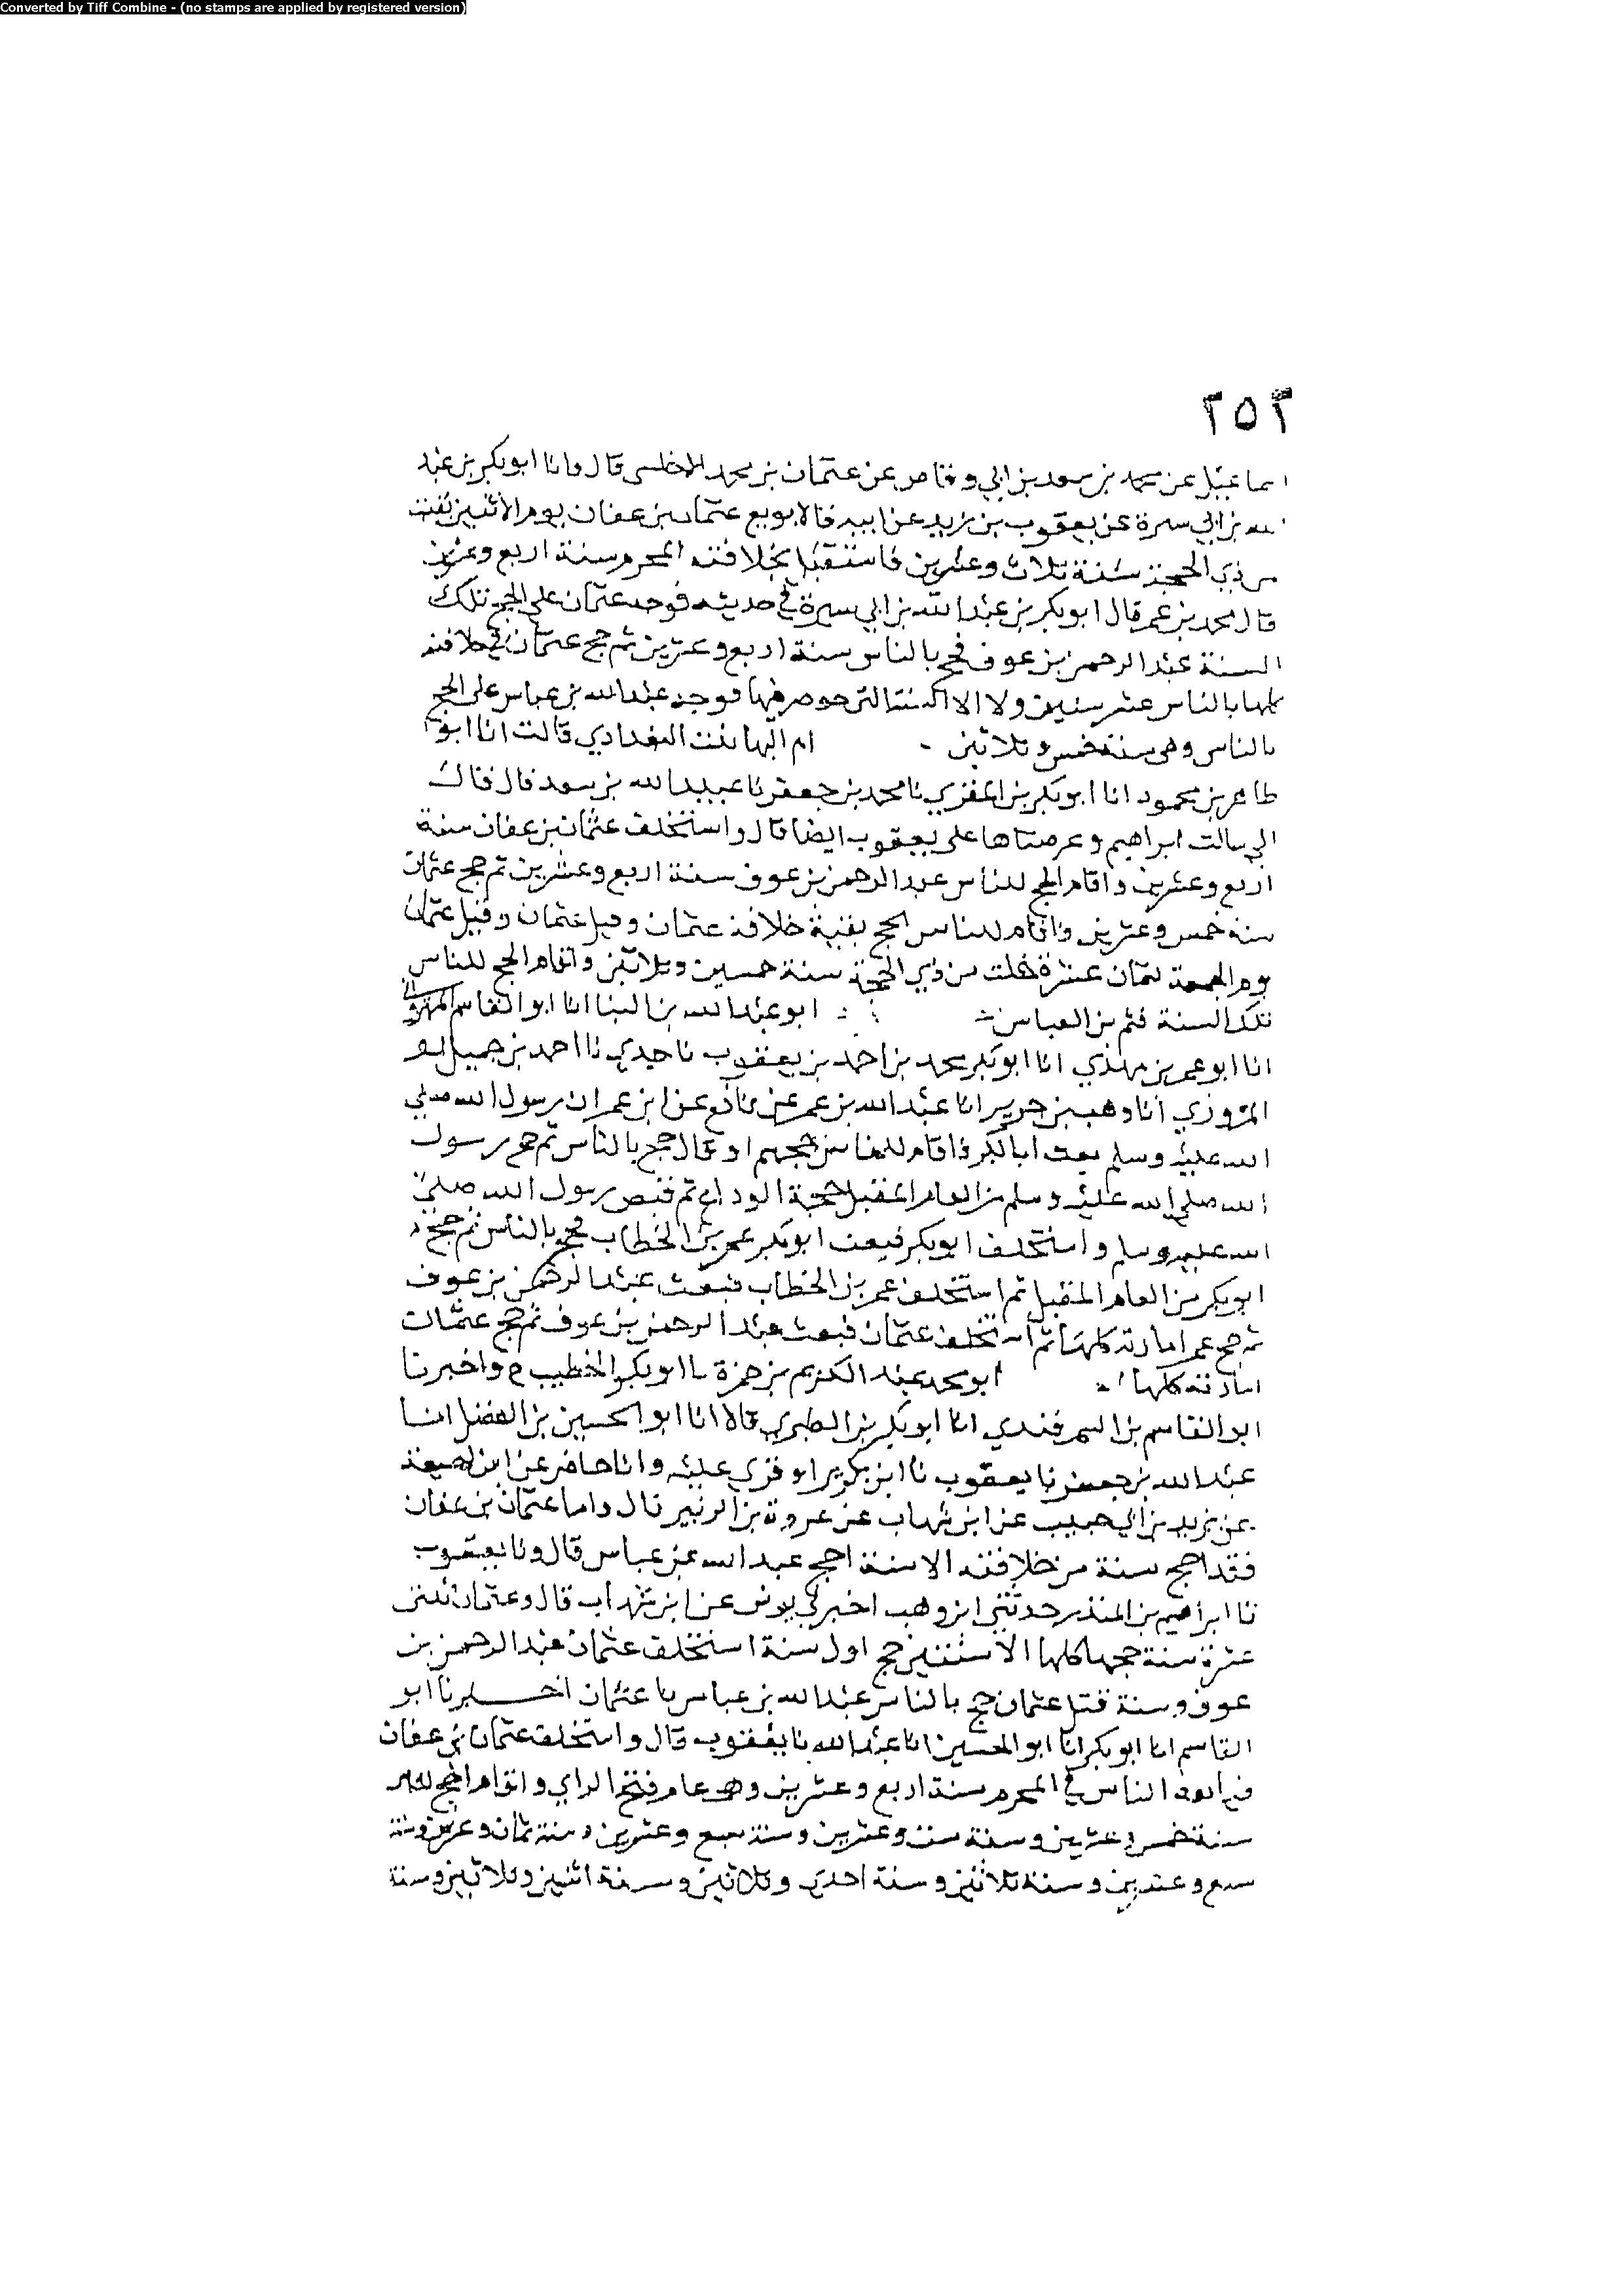 Converted by Tiff Combine - (no stamps are applied by registered version)
٢٥٣
اسماعيل عن محمد بن سعد بن ابي وقاص عن عثمان بن محمد الاخنسي قال وانا ابو بكر بن عبد
الله بن ابي سبرة عن يعقوب بن زيد عن ابيه قالا بويع عثمان بن عفان يوم الاثنين
من ذي الحجة سنة ثلاث وعشرين فاستقبل بخلافته المحرم سنة اربع وعشرين
قال محمد بن عمر قال ابو بكر بن عبد الله بن ابي سبرة في حديثه فوجه عثمان على الحج تلك
السنة عبد الرحمن بن عوف فحج بالناس سنة اربع وعشرين ثم حج عثمان في خلافته
كلها بالناس عشر سنين ولا الا السنة التي حوصر فيها فوجه عبد الله بن عباس على الحج
بالناس وهي سنة خمس وثلاثين ام البها بنت البغدادي قالت انا ابو
طاهر بن محمود انا ابو بكر بن المقري نا محمد بن جعفر نا عبيد الله بن سعد قال قال
ابي سالت ابراهيم وعرضناها على يعقوب ايضا قال واستخلف عثمان بن عفان سنة
اربع وعشرين واقام الحج للناس عبد الرحمن بن عوف سنة اربع وعشرين ثم حج عثمان
سنة خمس وعشرين واقام للناس الحج بقية خلافة عثمان وقيل عثمان وقبل عثمان
يوم الجمعة لثمان عشرة خلت من ذي الحجة سنة خمسين وثلاثين واقام الحج للناس
تلك السنة قثم بن العباس ابو عبد الله بن البنا انا ابو القاسم المهرواني
انا ابو عمر بن مهدي انا ابو بكر محمد بن احمد بن يعقوب نا جدي نا احمد بن جميل
المروزي انا وهب بن جرير انا عبد الله بن عمر عن نافع عن ابن عمر ان رسول الله صلى
الله عليه وسلم بعث ابا بكر فاقام للناس حجهم او قال حج بالناس ثم حج رسول
الله صلى الله عليه وسلم من العام المقبل حجة الوداع ثم قبض رسول الله صلى
الله عليه وسلم واستخلف ابو بكر فبعث ابو بكر عمر بن الخطاب فحج بالناس ثم حج
ابو بكر من العام المقبل ثم استخلف عمر بن الخطاب فبعث عبد الرحمن بن عوف
ثم حج عمر امارته كلها ثم استخلف عثمان فبعث عبد الرحمن بن عوف ثم حج عثمان
امارته كلها ابو محمد عبد الكريم بن حمزة نا ابو بكر الخطيب ح واخبرنا
ابو القاسم بن السمرقندي انا ابو بكر بن الطبري قالا انا ابو الحسين بن الفضل انا
عبد الله بن جعفر نا يعقوب نا ابن بكير او قرى عليه وانا حاضر عن ابن لهيعة
عن يزيد بن ابي حبيب عن ابن شهاب عن عروة بن الزبير قال واما عثمان بن عفان
فقد احج سنة من خلافته الا سنة احج عبد الله بن عباس قال ونا يعقوب
نا ابراهيم بن المنذر حدثني ابن وهب اخبرني يونس عن ابن شهاب قال وعثمان ثنتي
عشرة سنة حجها كلها الا سنتين حج اول سنة استخلف عثمان عبد الرحمن بن
عوف وسنة قتل عثمان حج بالناس عبد الله بن عباس يا عثمان اخبرنا ابو
القاسم انا ابو بكر انا ابو الحسين انا عبد الله نا يعقوب قال واستخلف عثمان بن عفان
الناس في المحرم سنة اربع وعشرين وهو عام فتح الراي واقام الحج
سنة خمس وعشرين وسنة ست وعشرين وسنة سبع وعشرين وسنة ثمان وعشرين وسنة
سبع وعشرين وسنة ثلاثين وسنة احدى وثلاثين وسنة اثنين وثلاثين وسنة